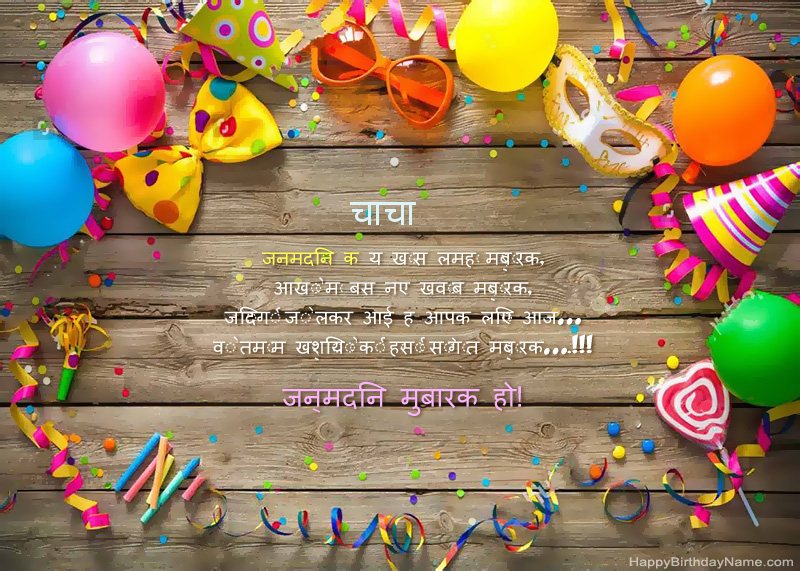 चाचा
जनमदनि क य खास लमहा मबारक,
आखोम बस नए खवाब मबारक,
जदिगी जो लकर आई ह आपक लएि आज...
वो तमाम खशयिो की हसी सौगात मबारक...!!!
जन्मदनि मुबारक हो!
HappyBirthdayName.com